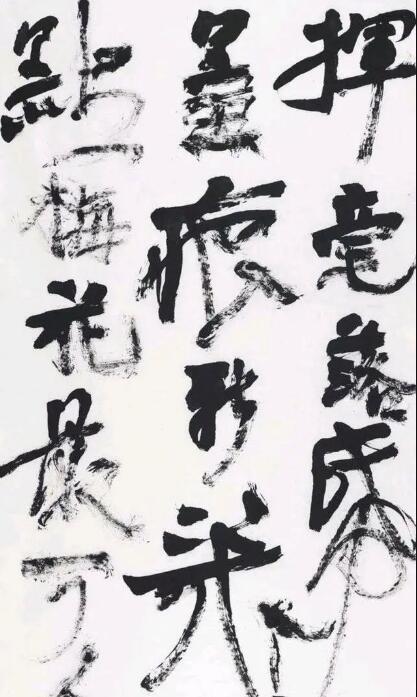 揮毫落帋
墨痕新幾
點梅花最可人